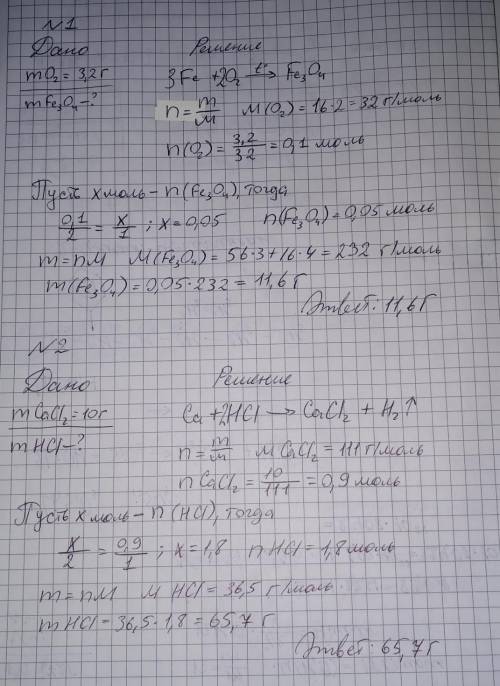 №1
Дано Решение
mO₂ = 3,2 г 3Fe + 2O₂ →^t° Fe₃O₄
mFe₃O₄ - ? n = m/M M(O₂) = 16·2 = 32 г/моль
n(O₂) = 3,2/32 = 0,1 моль
Пусть x моль - n(Fe₃O₄), тогда
0,1/2 = x/1 ; x = 0,05 n(Fe₃O₄) = 0,05 моль
m = nM M(Fe₃O₄) = 56·3 + 16·4 = 232 г/моль
m(Fe₃O₄) = 0,05·232 = 11,6 г
Ответ: 11,6 г
№2
Дано Решение
mCaCl₂ = 10г Ca + 2HCl → CaCl₂ + H₂↑
mHCl - ? n = m/M MCaCl₂ = 111 г/моль
nCaCl₂ = 10/111 = 0,9 моль
Пусть x моль - n(HCl), тогда
x/2 = 0,9/1 ; x = 1,8 nHCl = 1,8 моль
m = nM M HCl = 36,5 г/моль
mHCl = 36,5·1,8 = 65,7 г
Ответ: 65,7 г